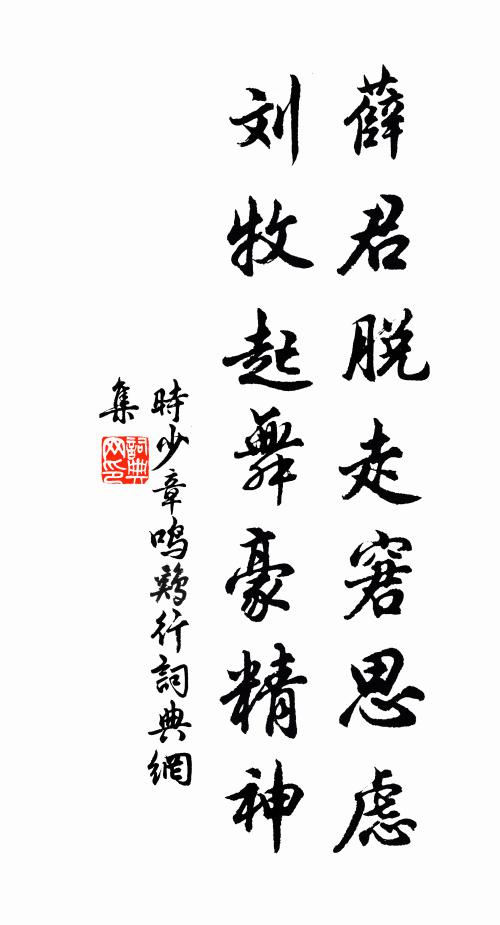 薛君脱走窘思虑
刘牧起舞豪精神
時少章鸣鷄行詞典網
集
詞典网印